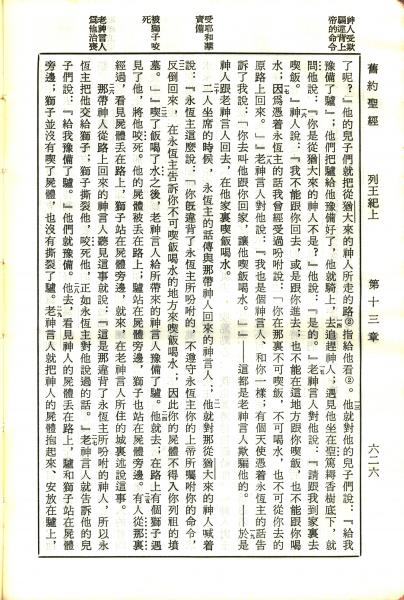 神人受欺
騙違背上
帝的命令
受耶和華
責備
被獅子咬
死
老神言人
為他治喪
舊約聖經 列王紀上 第十三章 六二六
了呢?』他的兒子們就把從猶大來的神人所走的路②指給他看②。他就對他的兒子們說:『給我
豫備了驢』;他們把驢給他豫備好了,他就騎上,去追趕神人;遇見他坐在聖篤耨香樹底下,就
問他說:『你是從猶大來的神人不是?』他說:『是的。』老神言人對他說:『請跟我到家裏去
喫飯。』神人說:『我不能跟你回去,或是跟你進去;也不能在這地方跟你喫飯,也不能跟你喝
水;因為憑着永恆主的話我曾經受過吩咐說:『你在那裏不可喫飯,不可喝水,也不可從你去的
原路上回來。』』老神言人對他說:『我也是個神人、和你一樣;有個天使憑着永恆主的話告
訴了我說:『你去叫他跟你回家,讓他喫飯喝水。』』——這都是老神言人欺騙他的。——於是
神人跟老神言人回去,在他家裏喫飯喝水。
二人坐席的時候,永恆主的話傳與那帶神人回來的神言人、他就對那從猶大來的神人喊着
說:『永恆主這麼說:『你既違背了永恆主所吩咐的,不遵守永恆主你的上帝所囑咐你的命令,
反倒回來,在永恆主告訴你不可喫飯喝水的地方來喫飯喝水,因此你的屍體不得入你列祖的墳
墓。』』喫了飯喝了水之後,老神言人給所帶來的神言人豫備了驢。他就去;在路上有個獅子遇
見了他,將他咬死。他的屍體被丟在路上,驢站在屍體旁邊,獅子也站在屍體旁邊。有人從那裏
經過,看見屍體丟在路上,獅子站在屍體旁邊,就來,在老神言人所住的城裏述說這事。
那帶神人從路上回來的神言人聽見這事就說:『這是那違背了永恆主所吩咐的神人,所以永
恆主把他交給獅子;獅子撕裂他,咬死他,正如永恆主對他說過的話。』老神言人就告訴他的兒
子們說:『給我豫備了驢。』他們就豫備。他去,看見神人的屍體丟在路上,驢和獅子站在屍體
旁邊;獅子並沒有喫了屍體,也沒有撕裂了驢。老神言人就把神人的屍體抱起來、安放在驢上,